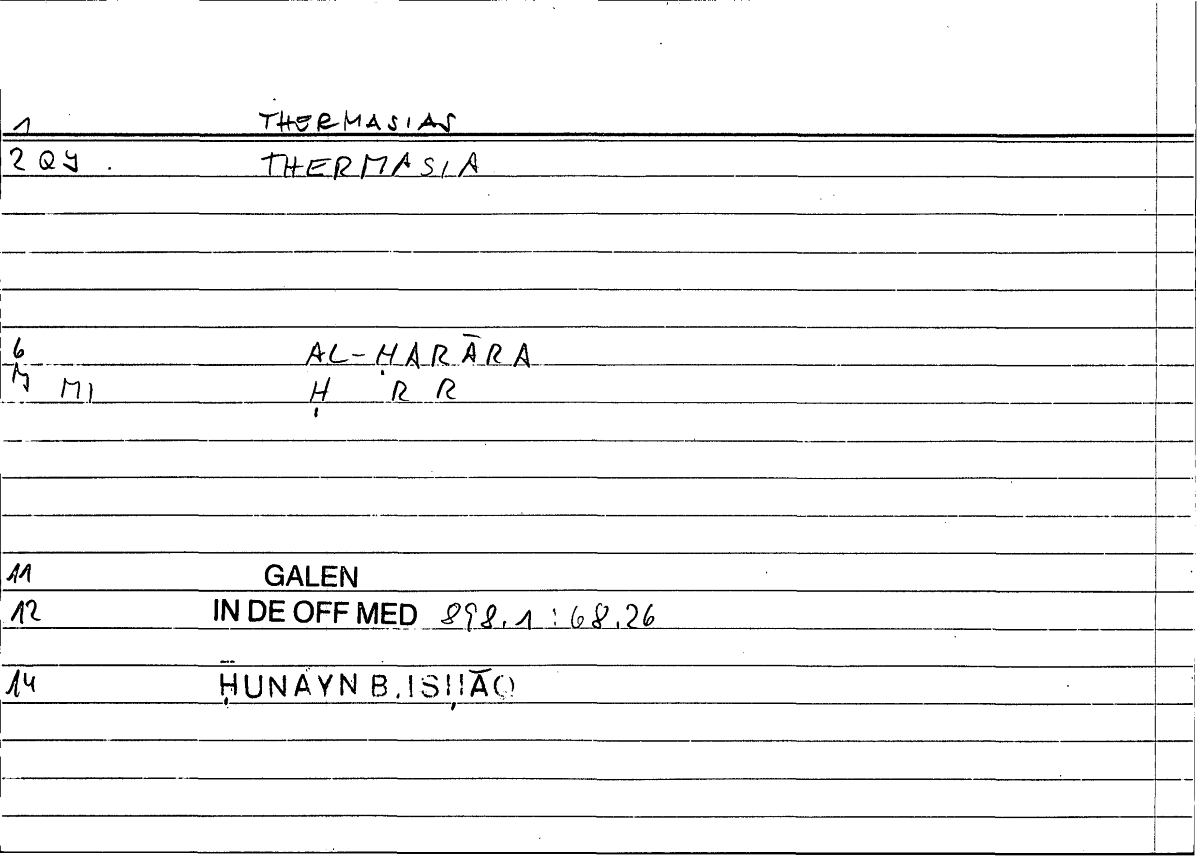 1 THERMASIAS
2 QY . THERMASIA
6 AL-ḤARĀRA
M MI Ḥ R R
11 GALEN
12 IN DE OFF MED 898.1 : 68.26
14 ḤUNAYN B. ISḤĀQ